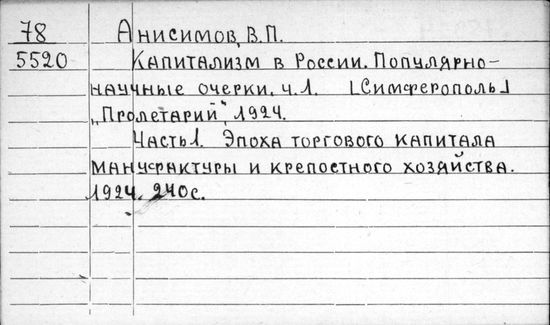 78 Анисимов, В.П.
5520 Капитализм в России. Популярно-
научные очерки. ч.1. [Симферополь]
„Пролетарий", 1924.
Часть 1. Эпоха торгового капитала
мануфактуры и крепостного хозяйства.
1924. 240с.